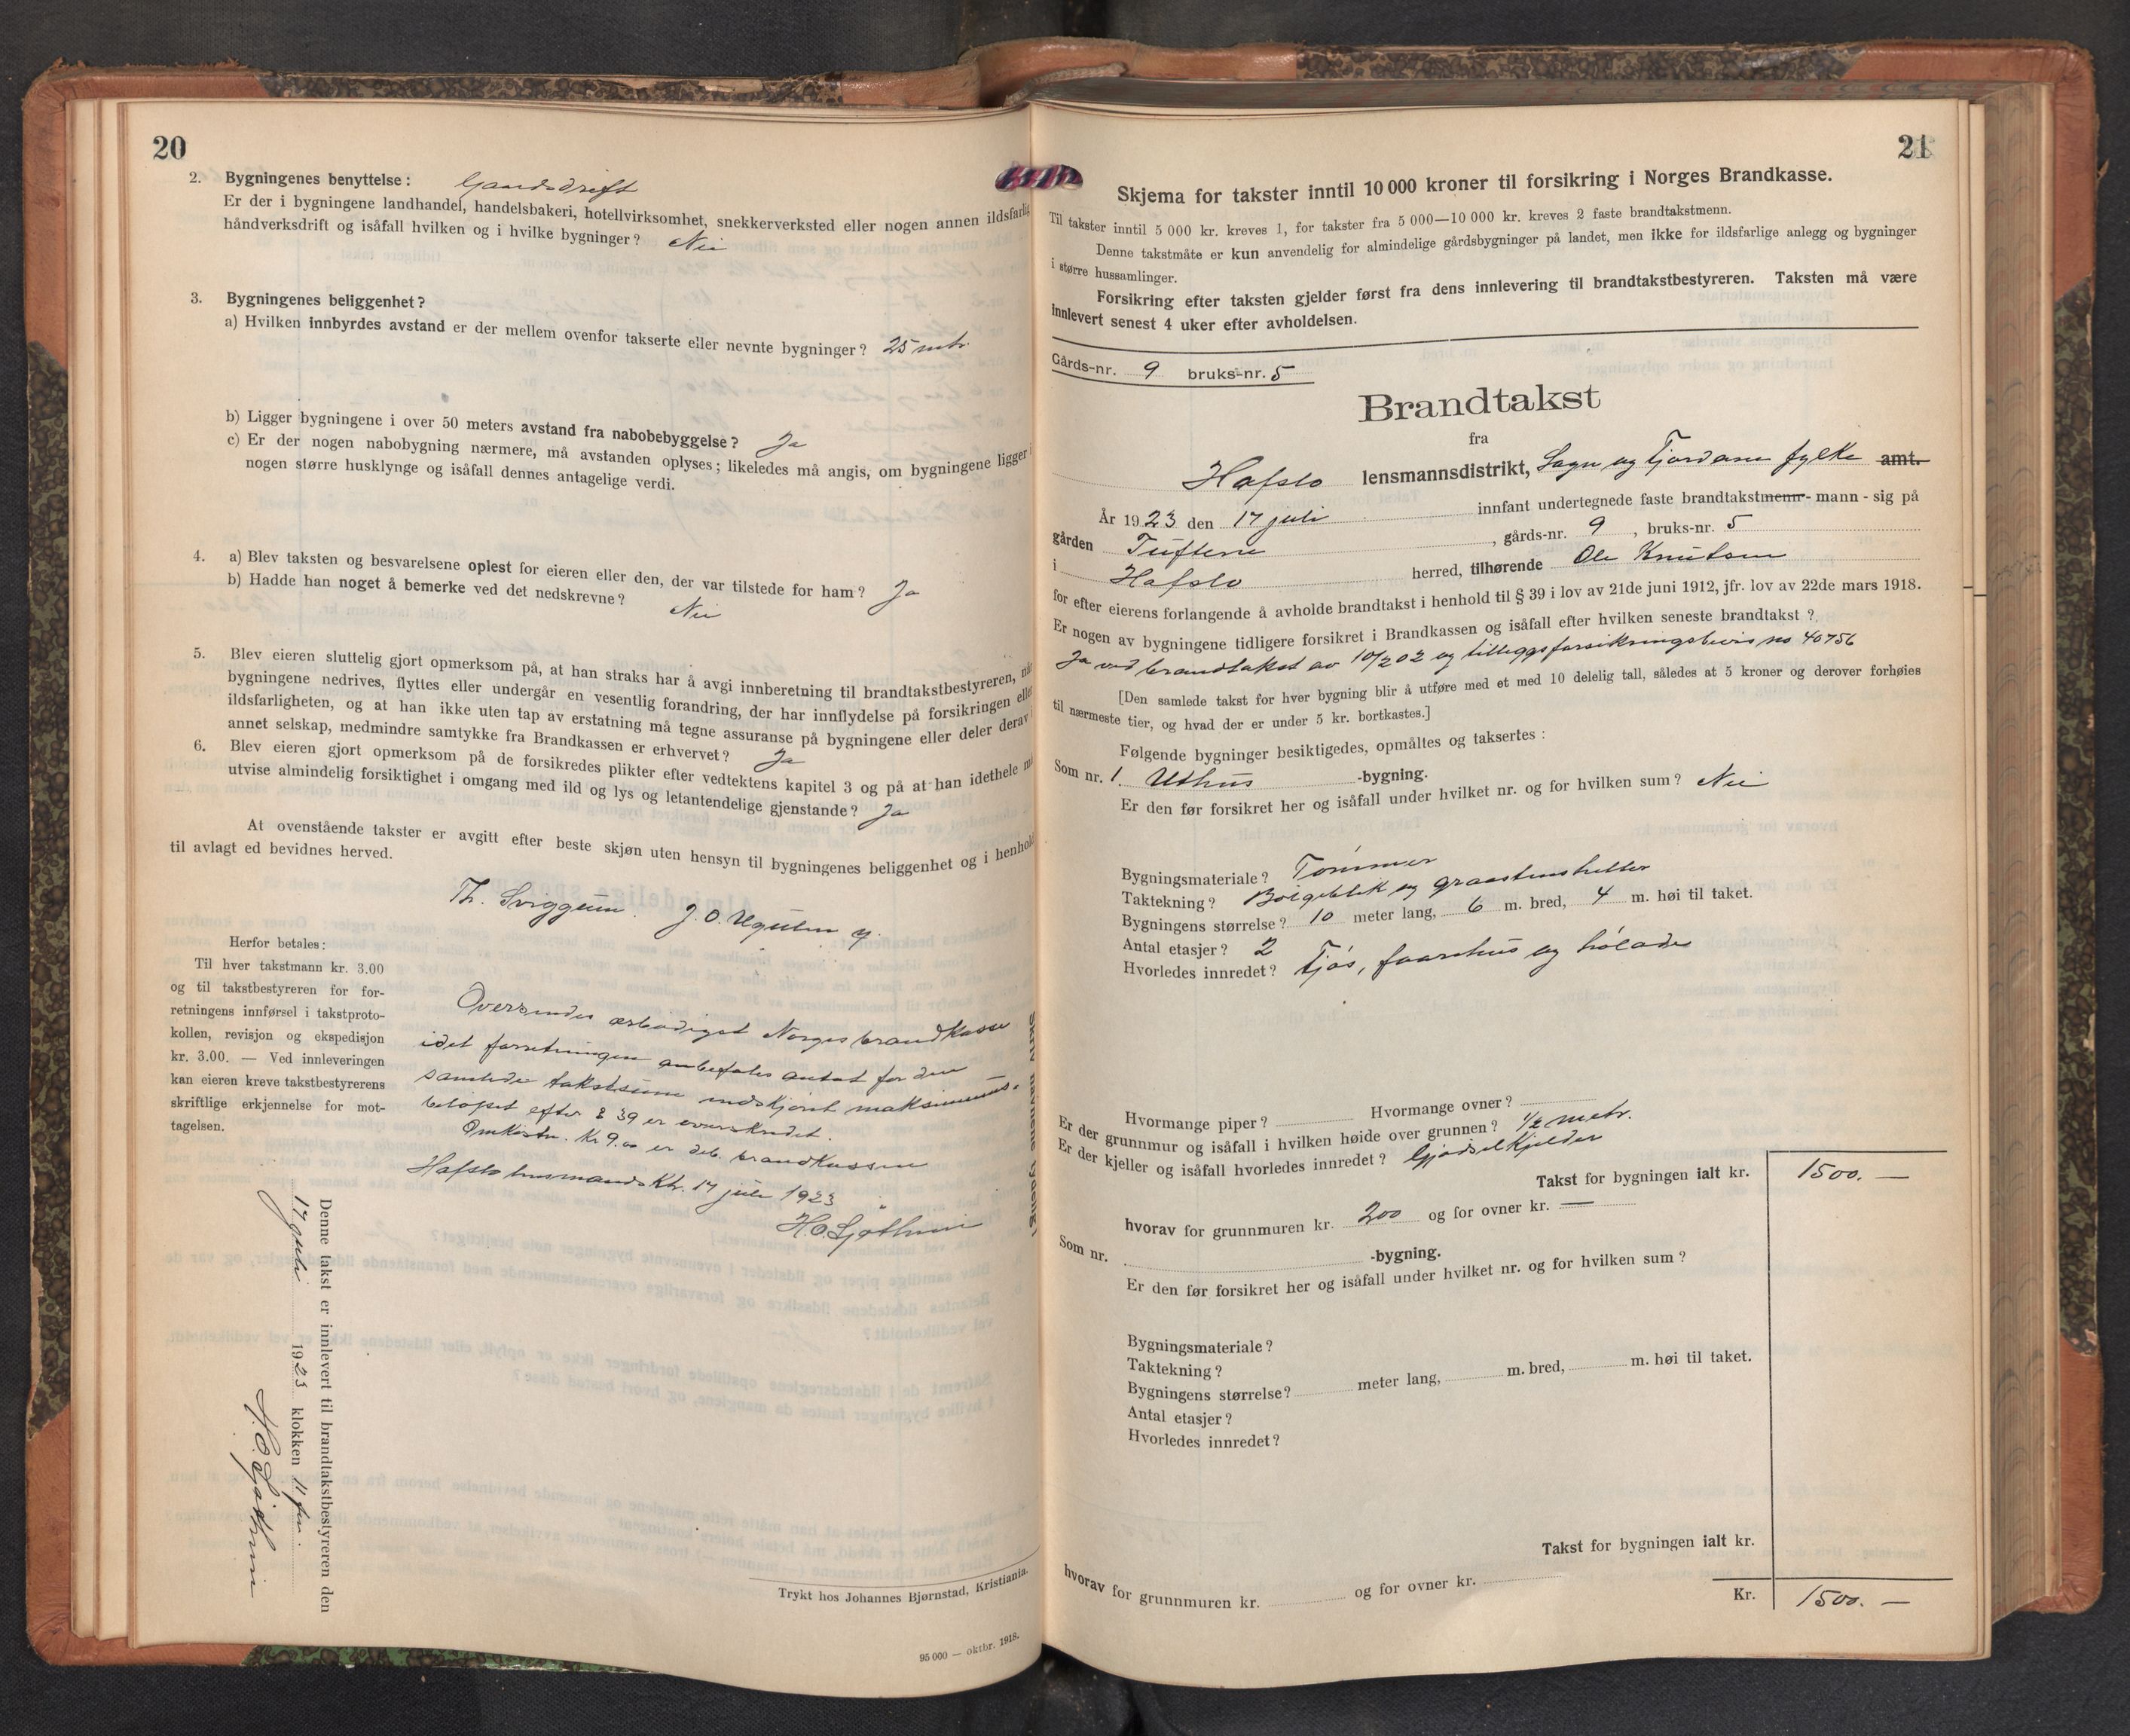 20
2. Bygningenes benyttelse: Gaardsdrift
Er der i bygningene landhandel, handelsbakeri, hotellvirksomhet, snekkerverksted eller nogen annen ildsfarlig
håndverksdrift og isåfall hvilken og i hvilke bygninger? Nei
3. Bygningenes beliggenhet?
a) Hvilken innbyrdes avstand er der mellem ovenfor takserte eller nevnte bygninger? 25 mtr.
b) Ligger bygningene i over 50 meters avstand fra nabobebyggelse? Ja
c) Er der nogen nabobygning nærmere, må avstanden oplyses; likeledes må angis, om bygningene ligger i
nogen større husklynge og isåfall dennes antagelige verdi.
4. a) Blev taksten og besvarelsene oplest for eieren eller den, der var tilstede for ham? Ja
b) Hadde han noget å bemerke ved det nedskrevne? Nei
5. Blev eieren sluttelig gjort opmerksom på, at han straks har å avgi innberetning til brandtakstbestyreren, når
bygningene nedrives, flyttes eller undergår en vesentlig forandring, der har innflydelse på forsikringen eller
ildsfarligheten, og at han ikke uten tap av erstatning må tegne assuranse på bygningene eller deler derav i
annet selskap, medmindre samtykke fra Brandkassen er erhvervet? Ja
6. Blev eieren gjort opmerksom på de forsikredes plikter efter vedtektens kapitel 3 og på at han idethele må
utvise almindelig forsiktighet i omgang med ild og lys og letantendelige gjenstande? Ja
At ovenstående takster er avgitt efter beste skjøn uten hensyn til bygningenes beliggenhet og i henhold
til avlagt ed bevidnes herved.
Th. Sviggum. J. O.
Herfor betales:
Til hver takstmann kr. 3.00
og til takstbestyreren for for-
retningens innførsel i takstproto-
kollen, revisjon og ekspedisjon
kr. 3.00. — Ved innleveringen
kan eieren kreve takstbestyrerens
skriftlige erkjennelse for mot-
tagelsen.
Oversendes ærbødigst Norges brandkasse
idet forretningen anbefales antat for den
samlede takstsum endskjønt maksimums-
beløpet efter § 39 er overskredet.
Omkostn. Kr 9.00 er deb. brandkassen
Hafslo lensmannsktr. 17 juli 1923
Denne takst er innlevert til brandtakstbestyreren den
17 juli 1923 klokken 11 fm.
Trykt hos Johannes Bjørnstad, Kristiania.
95 000 — oktbr. 1918.
21
Skjema for takster inntil 10 000 kroner til forsikring i Norges Brandkasse.
Til takster inntil 5 000 kr. kreves 1, for takster fra 5 000—10 000 kr. kreves 2 faste brandtakstmenn.
Denne takstmåte er kun anvendelig for almindelige gårdsbygninger på landet, men ikke for ildsfarlige anlegg og bygninger
i større hussamlinger.
Forsikring efter taksten gjelder først fra dens innlevering til brandtakstbestyreren. Taksten må være
innlevert senest 4 uker efter avholdelsen.
Gårds-nr. 9 bruks-nr. 5
Brandtakst
fra
Hafslo lensmannsdistrikt, Sogn og Fjordane fylke amt.
År 1923 den 17 juli innfant undertegnede faste brandtakstmenn- mann - sig på
gården Tuftene, gårds-nr. 9, bruks-nr. 5
i Hafslo herred, tilhørende Ole Knutsen
for efter eierens forlangende å avholde brandtakst i henhold til § 39 i lov av 21de juni 1912, jfr. lov av 22de mars 1918.
Er nogen av bygningene tidligere forsikret i Brandkassen og isåfall efter hvilken seneste brandtakst?
Ja ved brandtakst av 10/2 02 og tilleggsforsikringsbevis no 40756
[Den samlede takst for hver bygning blir å utføre med et med 10 delelig tall, således at 5 kroner og derover forhøies
til nærmeste tier, og hvad der er under 5 kr. bortkastes.]
Følgende bygninger besiktigedes, opmåltes og taksertes:
Som nr. 1. Uthus -bygning.
Er den før forsikret her og isåfall under hvilket nr. og for hvilken sum? Nei
Bygningsmateriale? Tømmer
Taktekning? Bølgeblik og graastensheller
Bygningens størrelse? 10 meter lang, 6 m. bred, 4 m. høi til taket.
Antal etasjer? 2
Hvorledes innredet? Fjøs, faarehus og høladе
Hvormange piper? Hvormange ovner?
Er der grunnmur og isåfall i hvilken høide over grunnen? 1/2 metr.
Er der kjeller og isåfall hvorledes innredet? Gjødselkjelder
Takst for bygningen ialt kr. 1500. —
hvorav for grunnmuren kr. 200 og for ovner kr. —
Som nr. -bygning.
Er den før forsikret her og isåfall under hvilket nr. og for hvilken sum?
Bygningsmateriale?
Taktekning?
Bygningens størrelse? meter lang, m. bred, m. høi til taket.
Antal etasjer?
Hvorledes innredet?
Takst for bygningen ialt kr.
hvorav for grunnmuren kr. og for ovner kr.
Kr. 1500. —